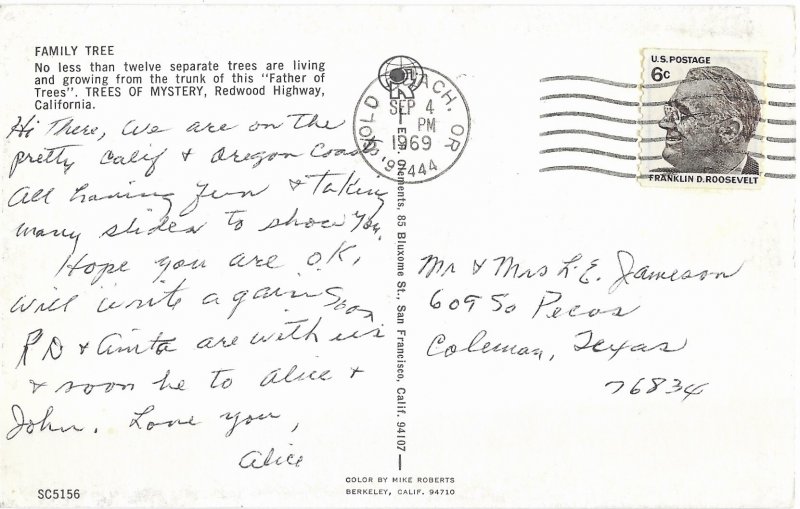 FAMILY TREE
No less than twelve separate trees are living
and growing from the trunk of this "Father of
Trees". TREES OF MYSTERY, Redwood Highway,
California.
Hi There, We are on the
pretty Calif & Oregon Coast
All having fun & taking
many slides to show you.
Hope you are O.K,
will write again soon
RD & Anita are with us
& soon be to Alice &
John. Love you,
Alice
SC5156
GOLD BEACH, OR
SEP 4
PM
1969
97444
E. F. Clements, 85 Bluxome St., San Francisco, Calif. 94107
COLOR BY MIKE ROBERTS
BERKELEY, CALIF. 94710
U.S. POSTAGE
6c
FRANKLIN D. ROOSEVELT
Mr & Mrs L.E. Jameson
609 So Pecos
Coleman, Texas
76834